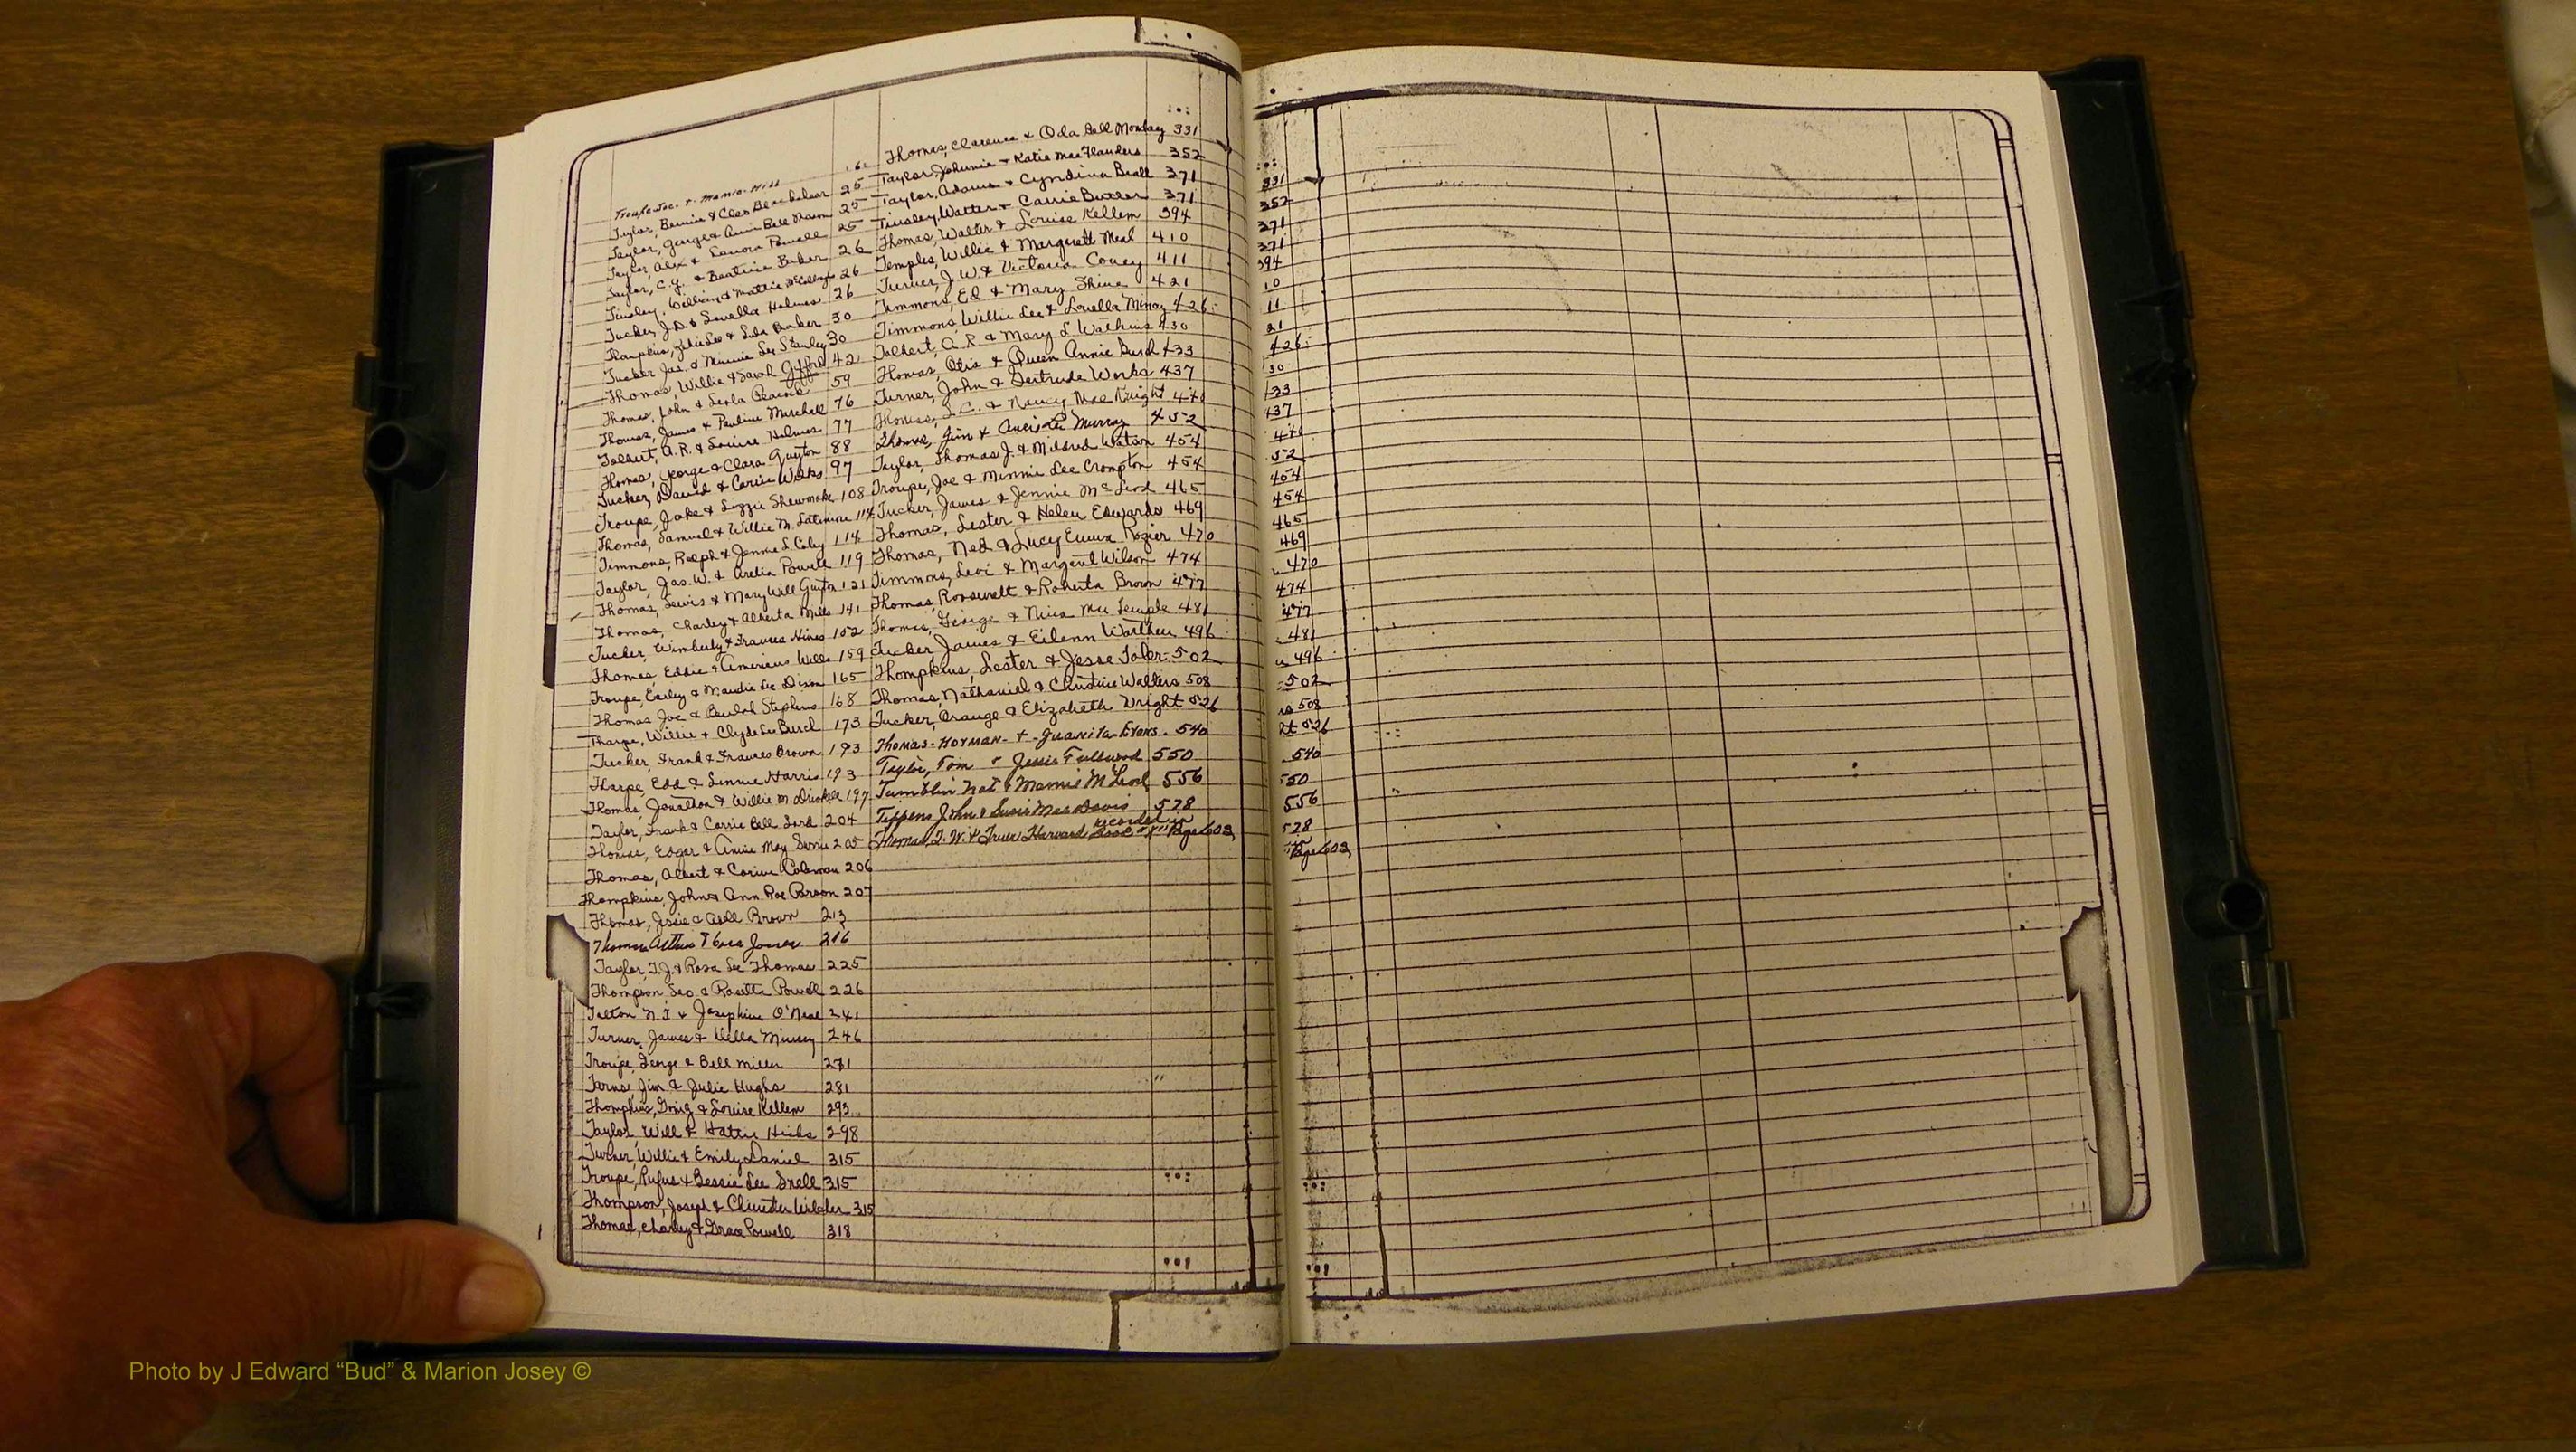 Troupe Joe. + Mamie Hill
Taylor, Bennie & Cleo Blackshear 25
Taylor, George & Annie Bell Mason 25
Taylor, Alex & Lenora Powell 25
Taylor, C.Y. & Beatrice Baker 26
Tinsley, William & Mattie 26
Tucker, J.D. & Louella Holmes 26
Thompkins, Lee & Lula Baker 30
Tucker Jas. & Minnie Lee Stanley 30
Thomas, Willie & Sarah 42
Thomas, John & Leola Peacock 59
Thomas, James & Pauline Mitchell 76
Tolbert, A.R. & Louise Holmes 77
Thomas, George & Clara Guyton 88
Tucker, David & Carrie Wilks 97
Troupe, Jake & Lizzie Shewmake 108
Thomas, Samuel & Willie M. Latimore 114
Timmons, Ralph & Jennie L. Coley 114
Taylor, Jas. W. & Arelia Powell 119
Thomas, Lewis & Mary Will Guyton 121
Thomas, Charley & Alberta Mills 141
Tucker, Wimberly & Frances Hines 152
Thomas, Eddie & Americus Wells 159
Troupe, Earley & Maudie Lee Dixon 165
Thomas Joe & Beulah Stephens 168
Tharpe, Willie & Clyde Lee Burch 173
Tucker, Frank & Frances Brown 193
Tharpe, Edd & Linnie Harris 193
Thomas, Jonathon & Willie M. Driskell 197
Taylor, Frank & Carrie Bell Lord 204
Thomas, Edgar & Annie May 205
Thomas, Albert & Corine Coleman 206
Thompkins, John & Ann Roe Parson 207
Thomas, Jessie & Odell Brown 213
Thomas Arthur & 216
Taylor, T.J. & Rosa Lee Thomas 225
Thompson, Leo & Rosetta Powell 226
Talton N.T. & Josephine O'Neal 241
Turner, James & Della Mincey 246
Troupe, George & Bell Miller 271
Jim & Julie Hughs 281
Thompkins, & Louise Kellem 293
Taylor, Will & Hattie Hicks 298
Turner, Willie & Emily Daniel 315
Troupe, Rufus & Bessie Lee Snell 315
Thompson, Joseph & 315
Thomas, Charley & Grace Powell 318
Thomas, Clarence & Oda Bell Monday 331
Taylor, Johnnie & Katie Mae Flanders 352
Taylor, Adams & Cyndina Beall 371
Tinsley, Walter & Carrie Butler 371
Thomas, Walter & Louise Kellem 394
Temples, Willie & Margrett Neal 410
Turner, J.W. & Victoria Coney 411
Timmons, Ed & Mary Shine 421
Timmons, Willie Lee & Louella 426
Tolbert, A.R. & Mary L. Watkins 430
Thomas, Otis & Queen Annie Burch 433
Turner, John & Gertrude Works 437
Thomas, & Nancy Mae Knight
Thomas, Jim & Murray 452
Taylor, Thomas J. & Mildred Watson 454
Troupe, Joe & Minnie Lee Crompton 454
Tucker, James & Jennie McLeod 465
Thomas, Lester & Helen Edwards 469
Thomas, Ned & Lucy Emma Rozier 470
Timmons, Levi & Margaret Wilson 474
Thomas, Roosevelt & Roberta Brown 477
Thomas, George & Nina Mae Temple 481
Tucker James & Eilenn Warthen 496
Thompkins, Lester & Jesse Toler 502
Thomas, Nathaniel & Christine Walters 508
Tucker, Orange & Elizabeth Wright 526
Thomas - Norman - + - Juanita - Evans - 540
Taylor, Tom & Jessie Fullwood 550
Tumblin Nat & Mamie McLeod 556
Tippens John & Susie Mae Davis 578
Thomas, T.W. & Harvard recorded in Book Page 603
331
352
371
371
394
10
11
21
426
30
433
437
52
454
454
465
469
470
474
477
481
496
502
508
526
540
550
556
578
Page 603
Photo by J Edward “Bud” & Marion Josey ©